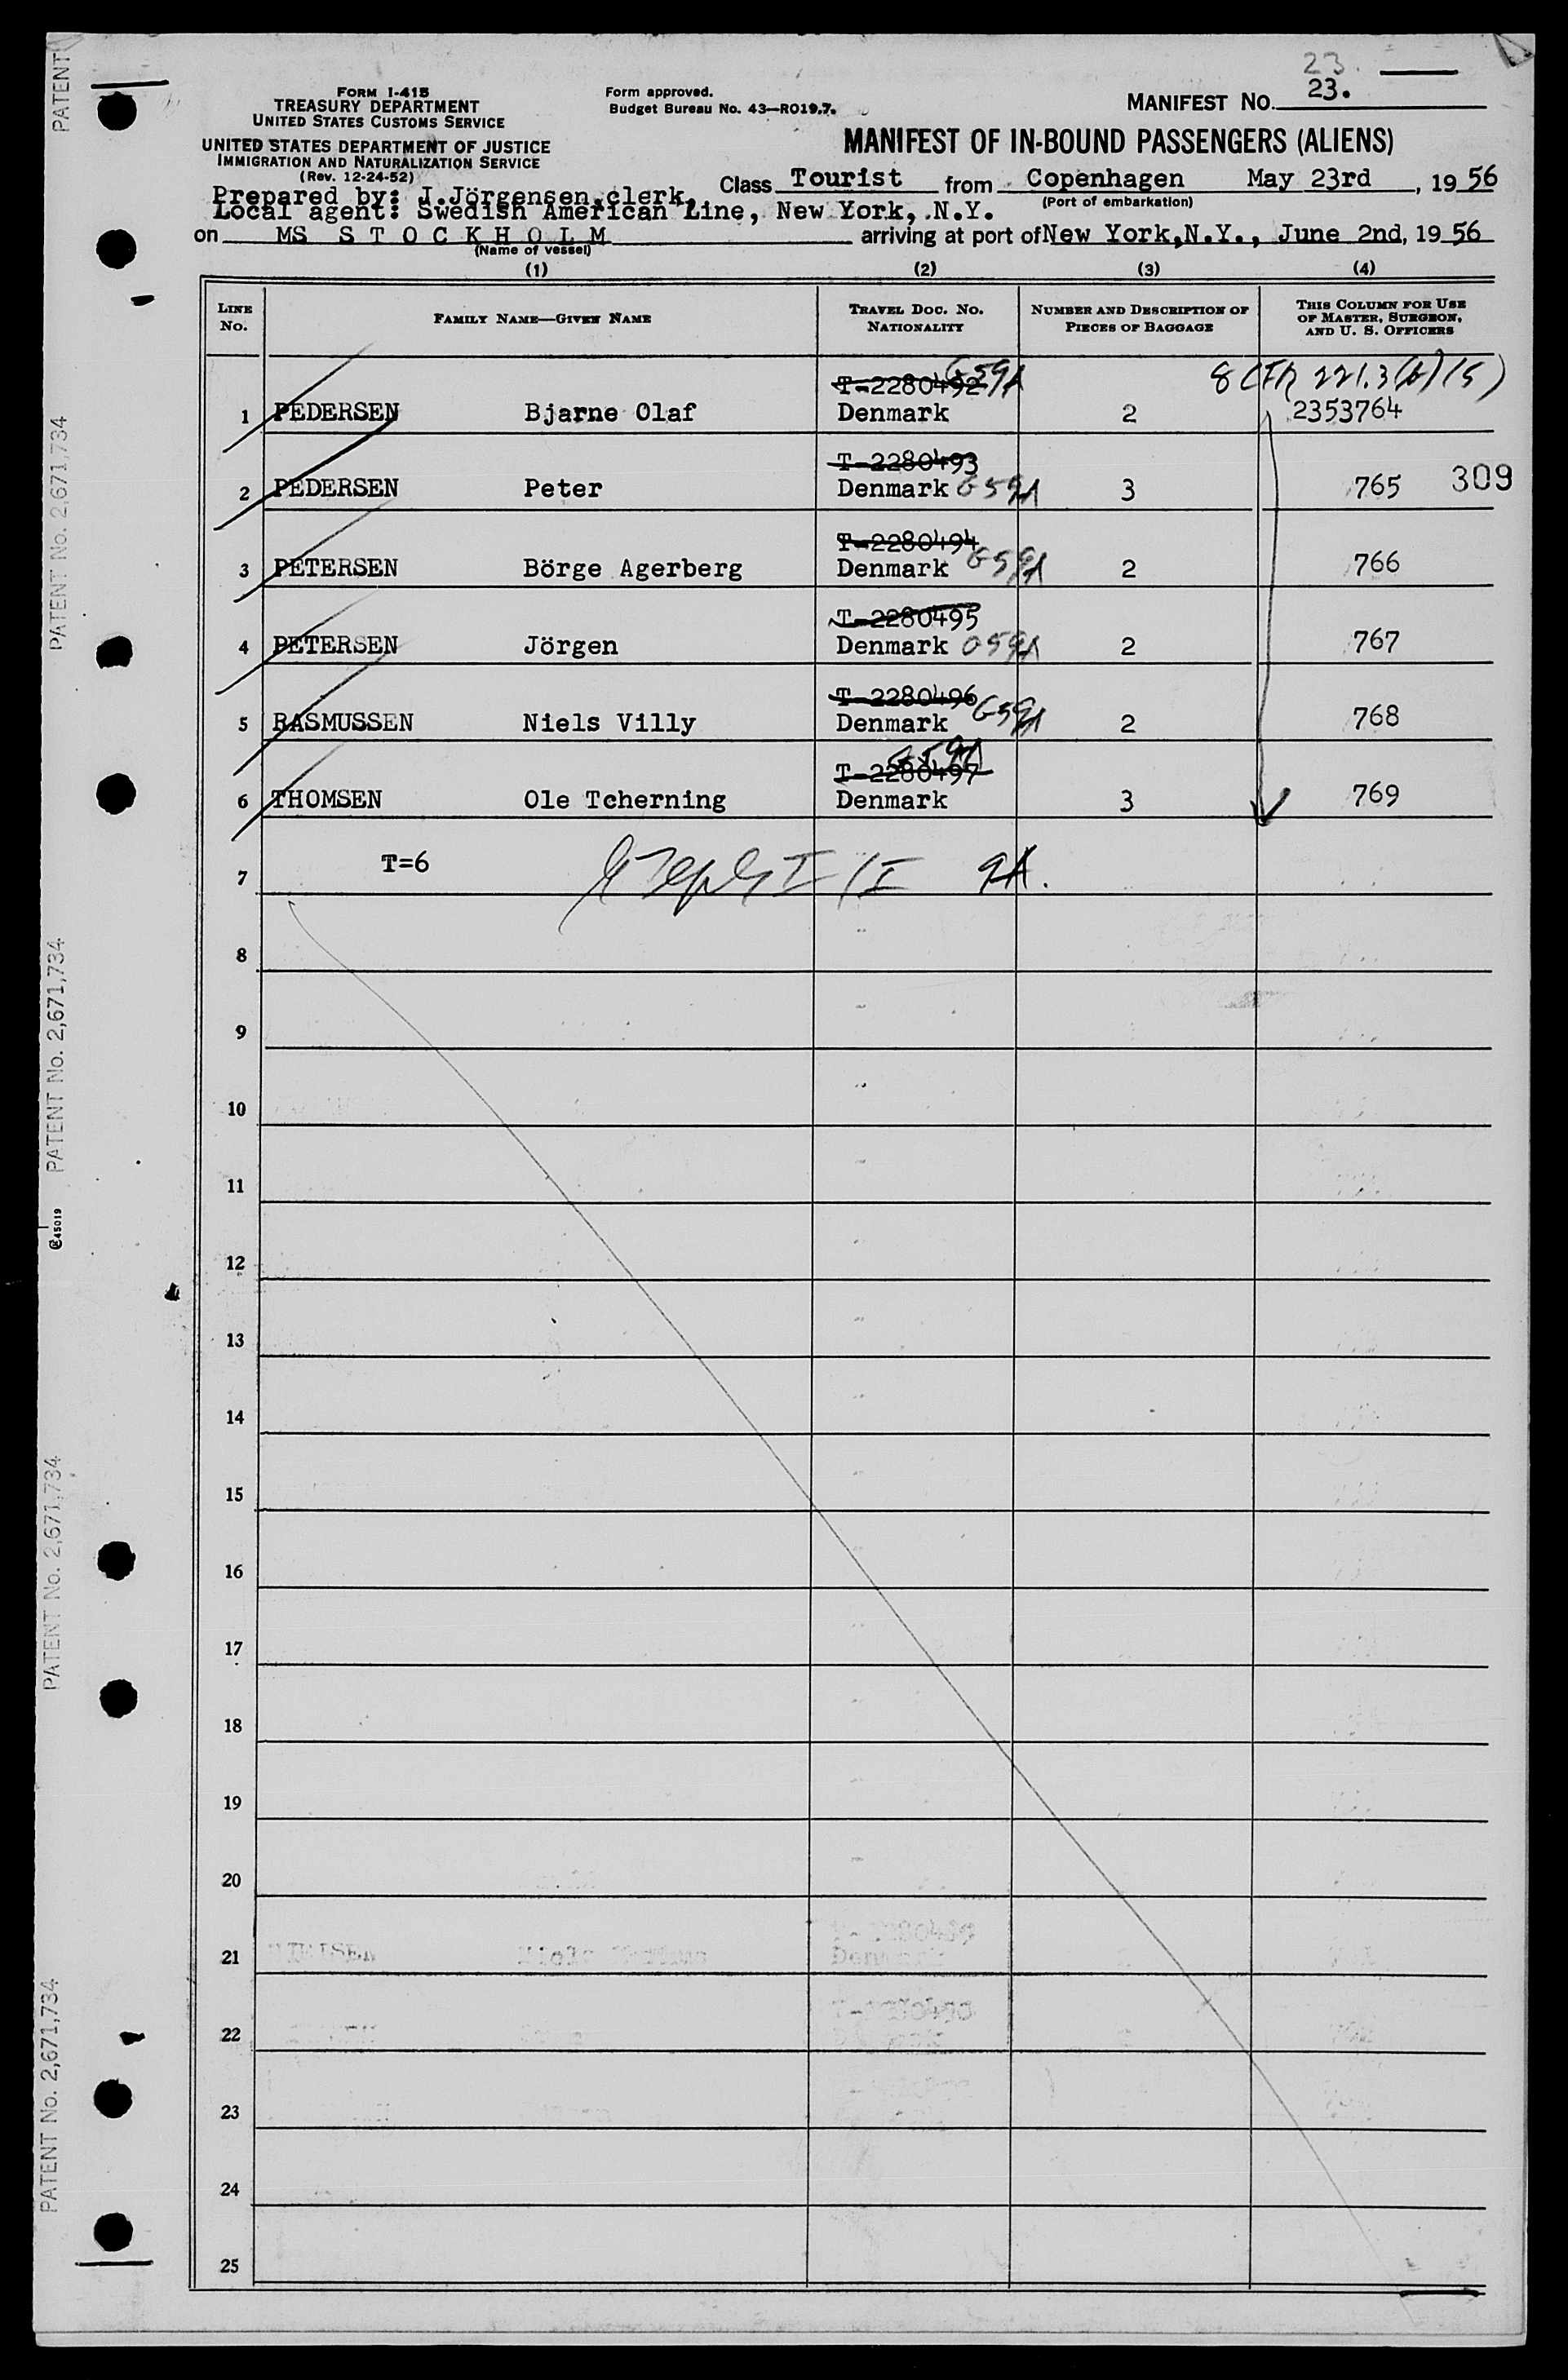 23.
FORM I-415
TREASURY DEPARTMENT
UNITED STATES CUSTOMS SERVICE
UNITED STATES DEPARTMENT OF JUSTICE
IMMIGRATION AND NATURALIZATION SERVICE
(Rev. 12-24-52)
Form approved.
Budget Bureau No. 43—RO19.7.
MANIFEST NO. 23.
MANIFEST OF IN-BOUND PASSENGERS (ALIENS)
Prepared by: J.Jörgensen,clerk,
Class Tourist from Copenhagen May 23rd, 1956
(Port of embarkation)
Local agent: Swedish American Line, New York, N.Y.
on MS S T O C K H O L M arriving at port of New York,N.Y., June 2nd, 1956
(Name of vessel)
(1) (2) (3) (4)
LINE NO.
FAMILY NAME—GIVEN NAME
TRAVEL DOC. NO. NATIONALITY
NUMBER AND DESCRIPTION OF PIECES OF BAGGAGE
THIS COLUMN FOR USE OF MASTER, SURGEON, AND U. S. OFFICERS
T-2280492 G59A 8 CFR 221.3(b)(5)
1 PEDERSEN Bjarne Olaf Denmark 2 2353764
T-2280493
2 PEDERSEN Peter Denmark G59A 3 765 309
T-2280494
3 PETERSEN Börge Agerberg Denmark G59A 2 766
T-2280495
4 PETERSEN Jörgen Denmark G59A 2 767
T-2280496
5 RASMUSSEN Niels Villy Denmark G59A 2 768
T-2280497 G59A
6 THOMSEN Ole Tcherning Denmark 3 769
7 T=6 9A.
8
9
10
11
12
13
14
15
16
17
18
19
20
21
22
23
24
25
PATENT
PATENT No. 2,671,734
PATENT No. 2,671,734
E45019
PATENT No. 2,671,734
PATENT No. 2,671,734